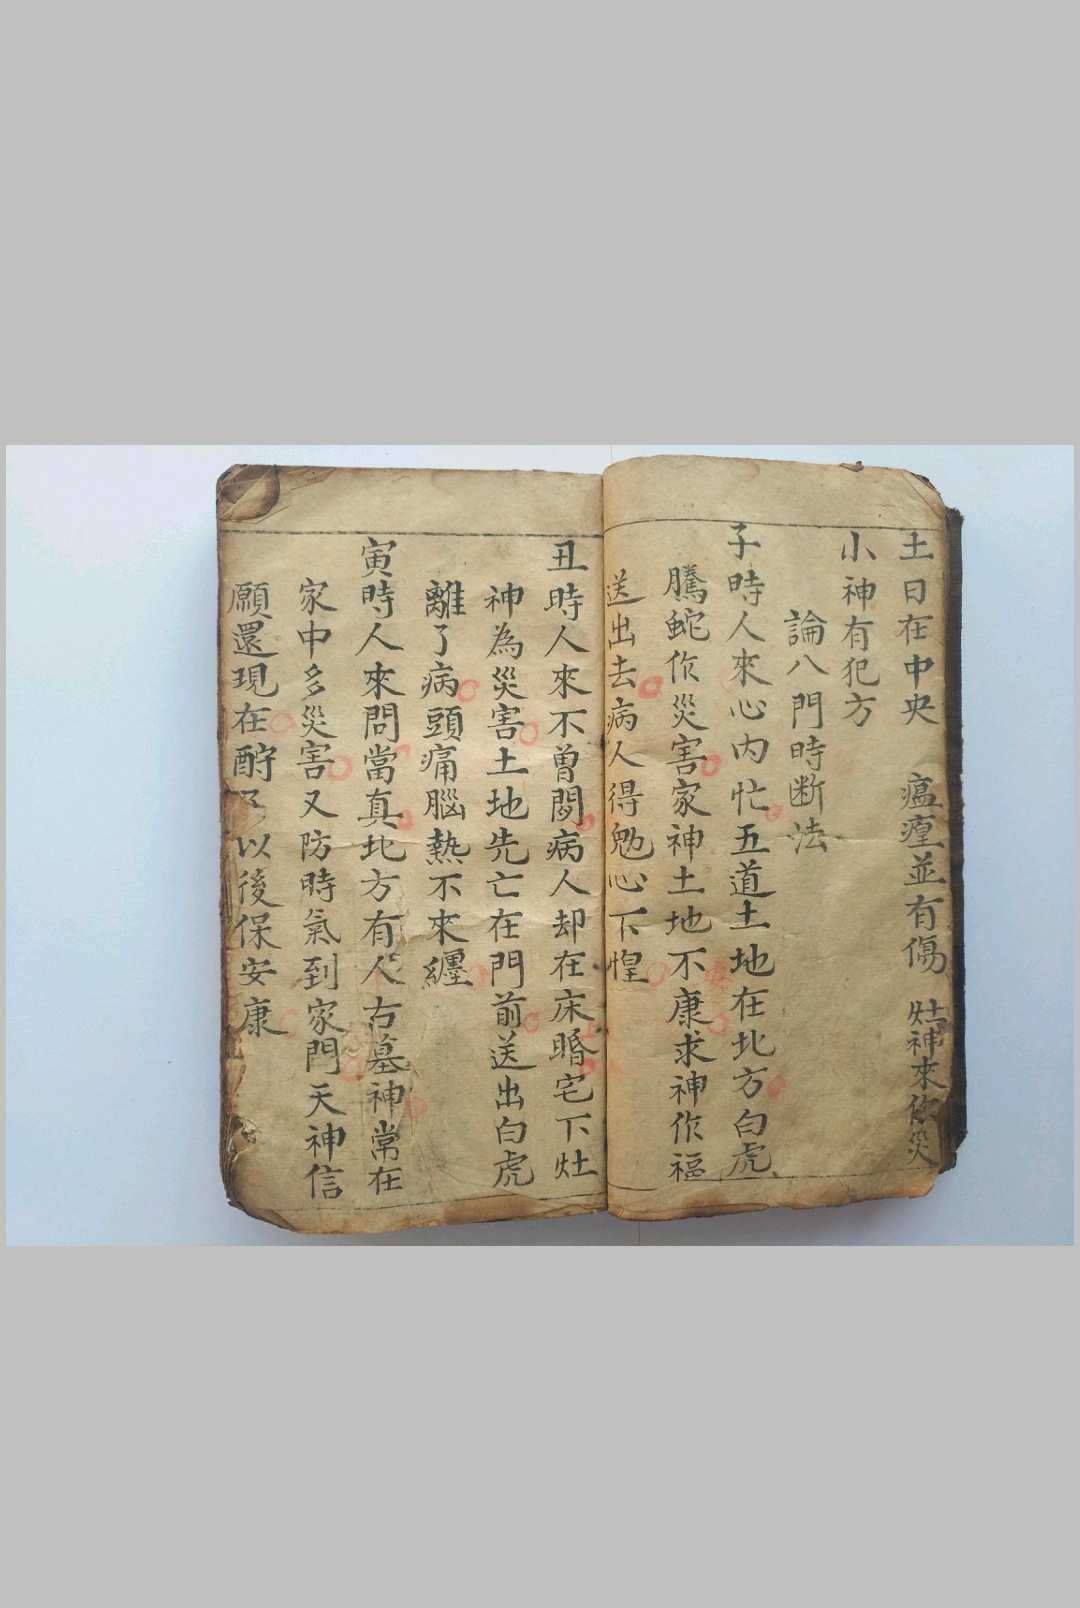 土日在中央 瘟㾮並有傷 灶神來作災
小神有犯方
論八門時断法
子時人來心内忙五道土地在北方白虎
騰蛇作災害家神土地不康求神作福
送出去病人得勉心下惶
丑時人來不曾閗病人却在床㬪宅下灶
神為災害土地先亡在門前送出白虎
離了病頭痛腦熱不來纏
寅時人來問當真北方有人古墓神常在
家中多災害又防時氣到家門天神信
願還現在酧以後保安康